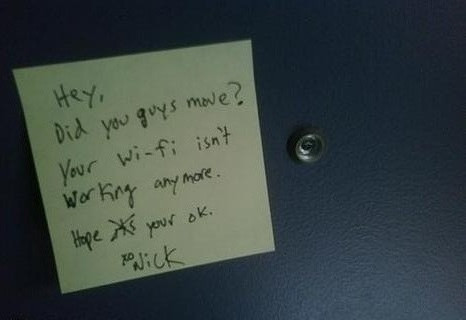 Hey,
Did you guys move?
Your Wi-Fi isn't
Working anymore.
Hope your ok.
xo Nick